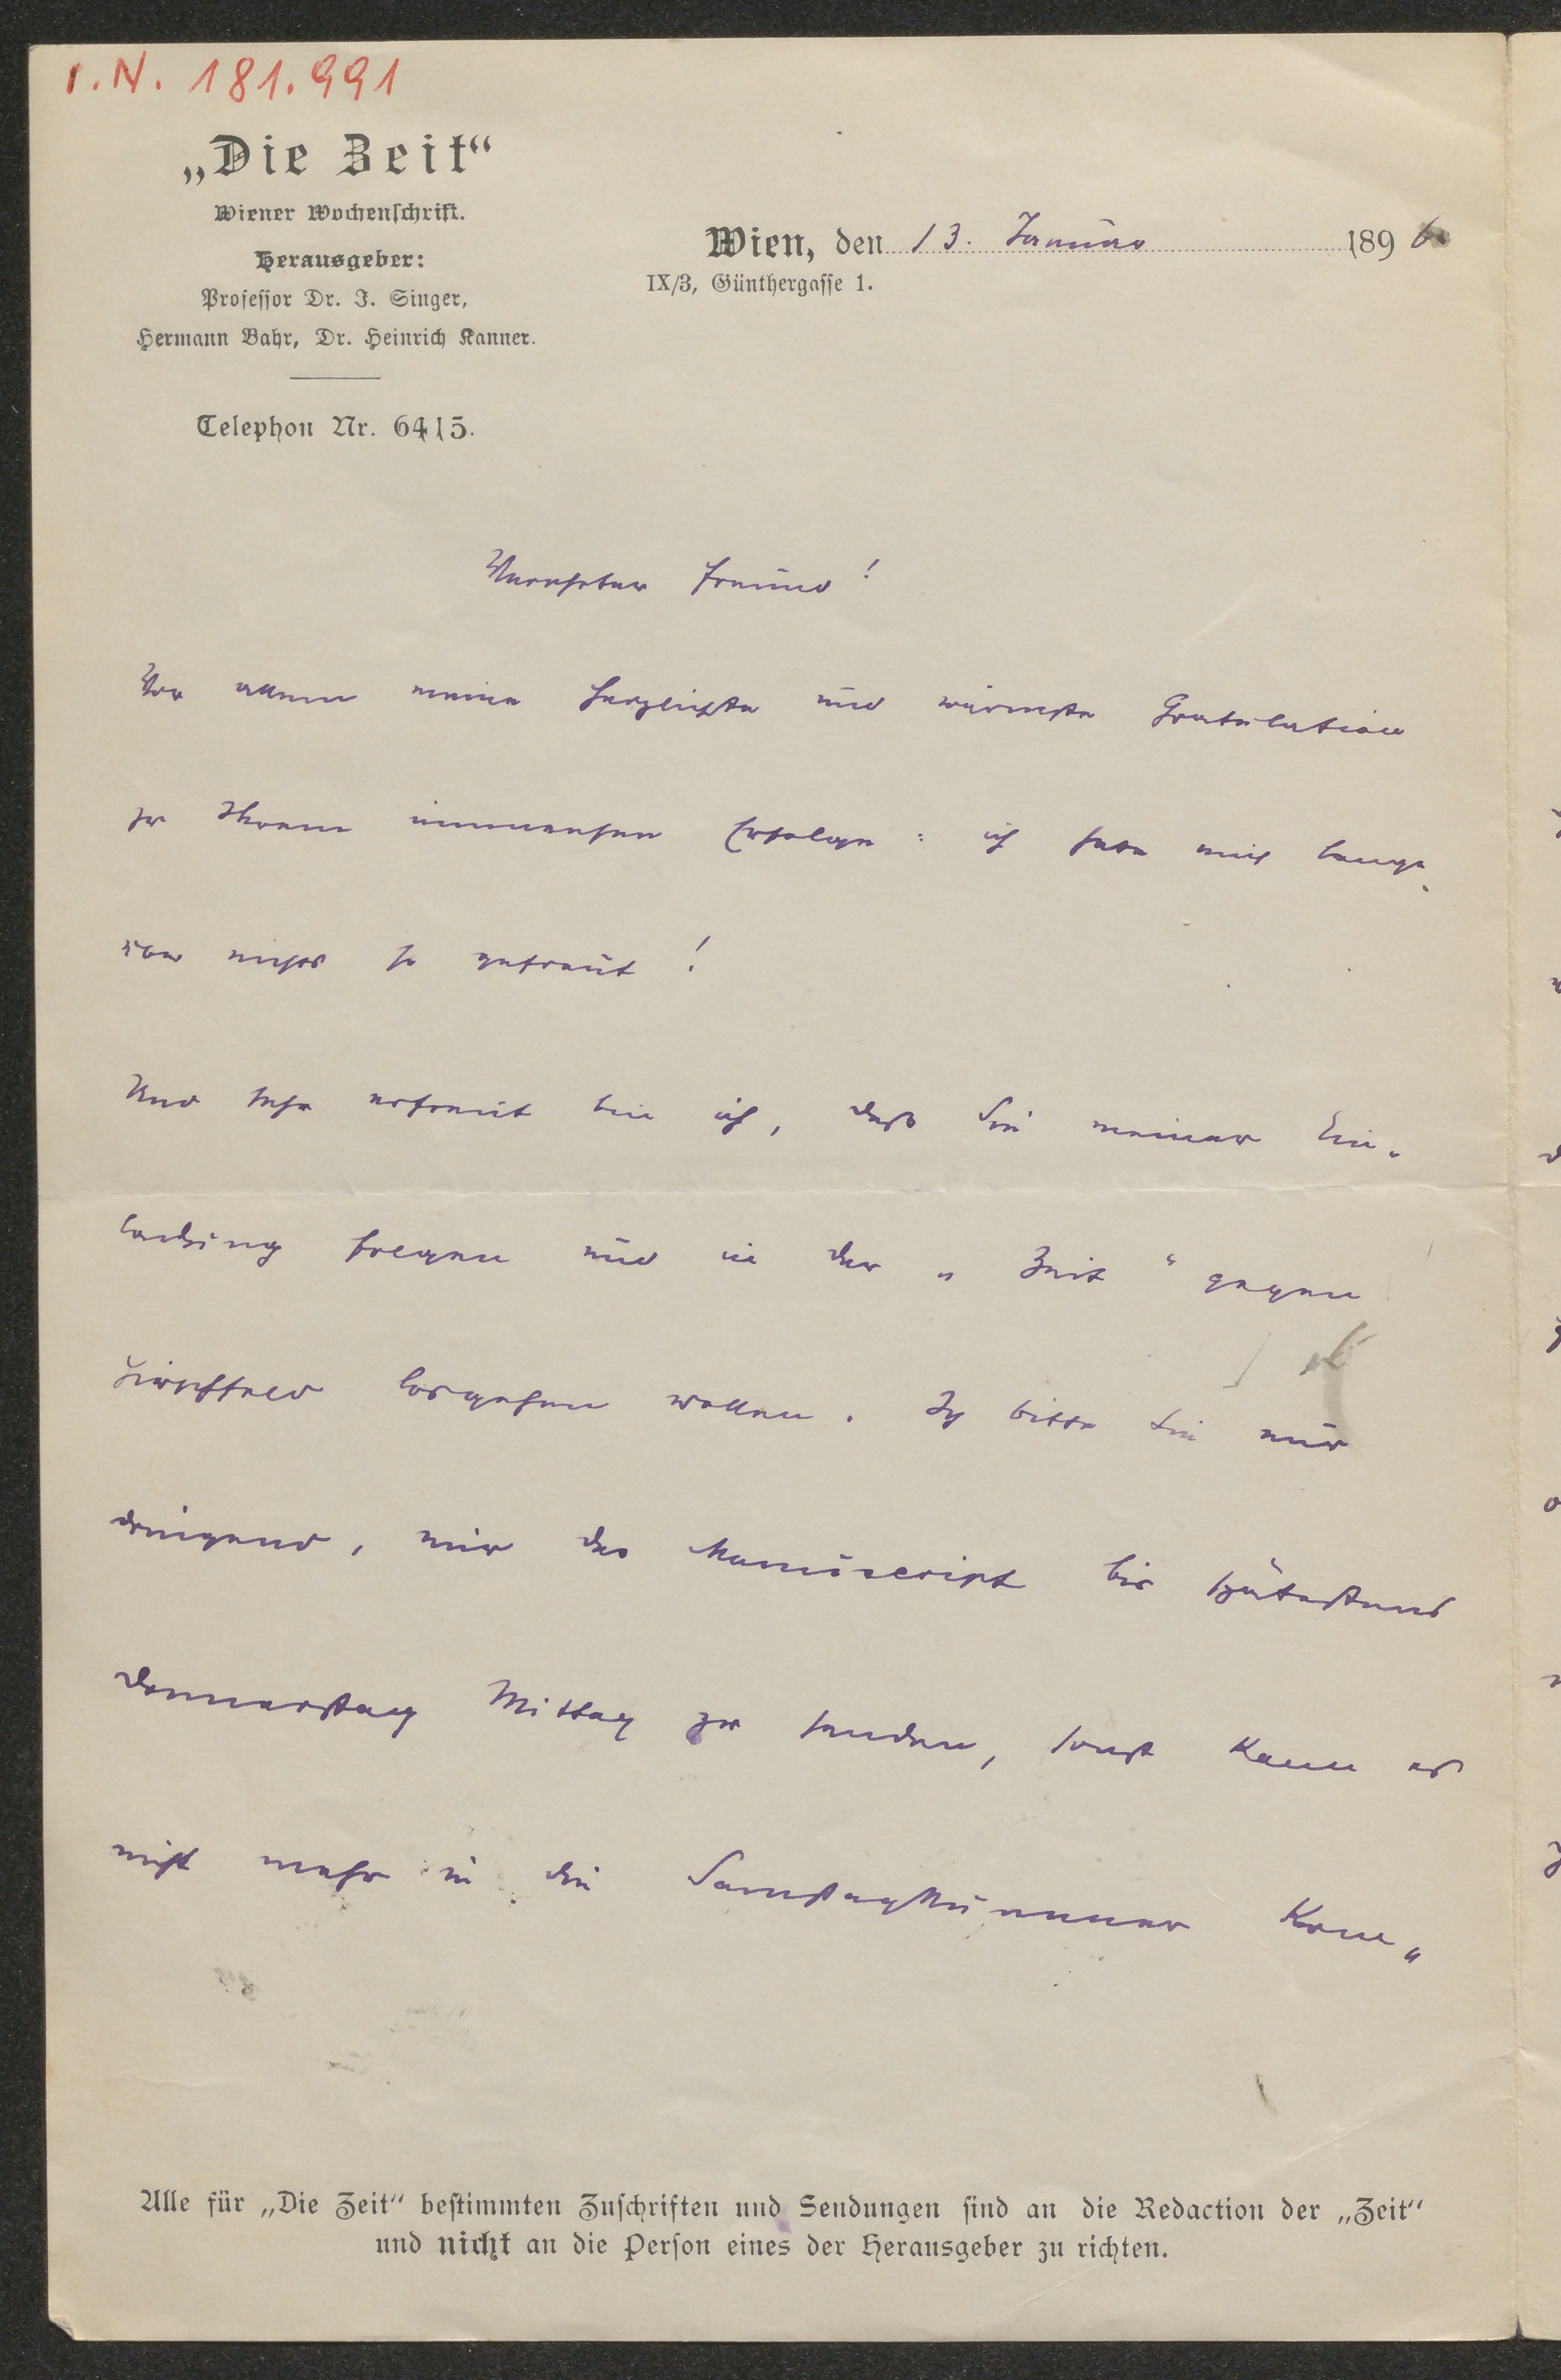 I.N. 181.991
„Die Zeit“
Wiener Wochenschrift.
Herausgeber:
Professor Dr. J. Singer,
Hermann Bahr, Dr. Heinrich Kanner.
Telephon Nr. 6415.
Wien, den 13. Januar 1896
IX/3, Günthergasse 1.
Verehrter Freund!
Vor allem meine herzlichste und wärmste Gratulation
zu Ihrem immensen Erfolge: ich habe mich lange
über nichts so gefreut!
Und sehr erfreut bin ich, daß Sie meiner Ein-
ladung folgen und in der „Zeit“ gegen
Hirschfeld losgehen wollen. Ich bitte Sie nur
dringend, mir das Manuscript bis spätestens
Donnerstag Mittag zu senden, sonst kann es
nicht mehr in die Samstagnummer kom-
Alle für „Die Zeit“ bestimmten Zuschriften und Sendungen sind an die Redaction der „Zeit“
und nicht an die Person eines der Herausgeber zu richten.